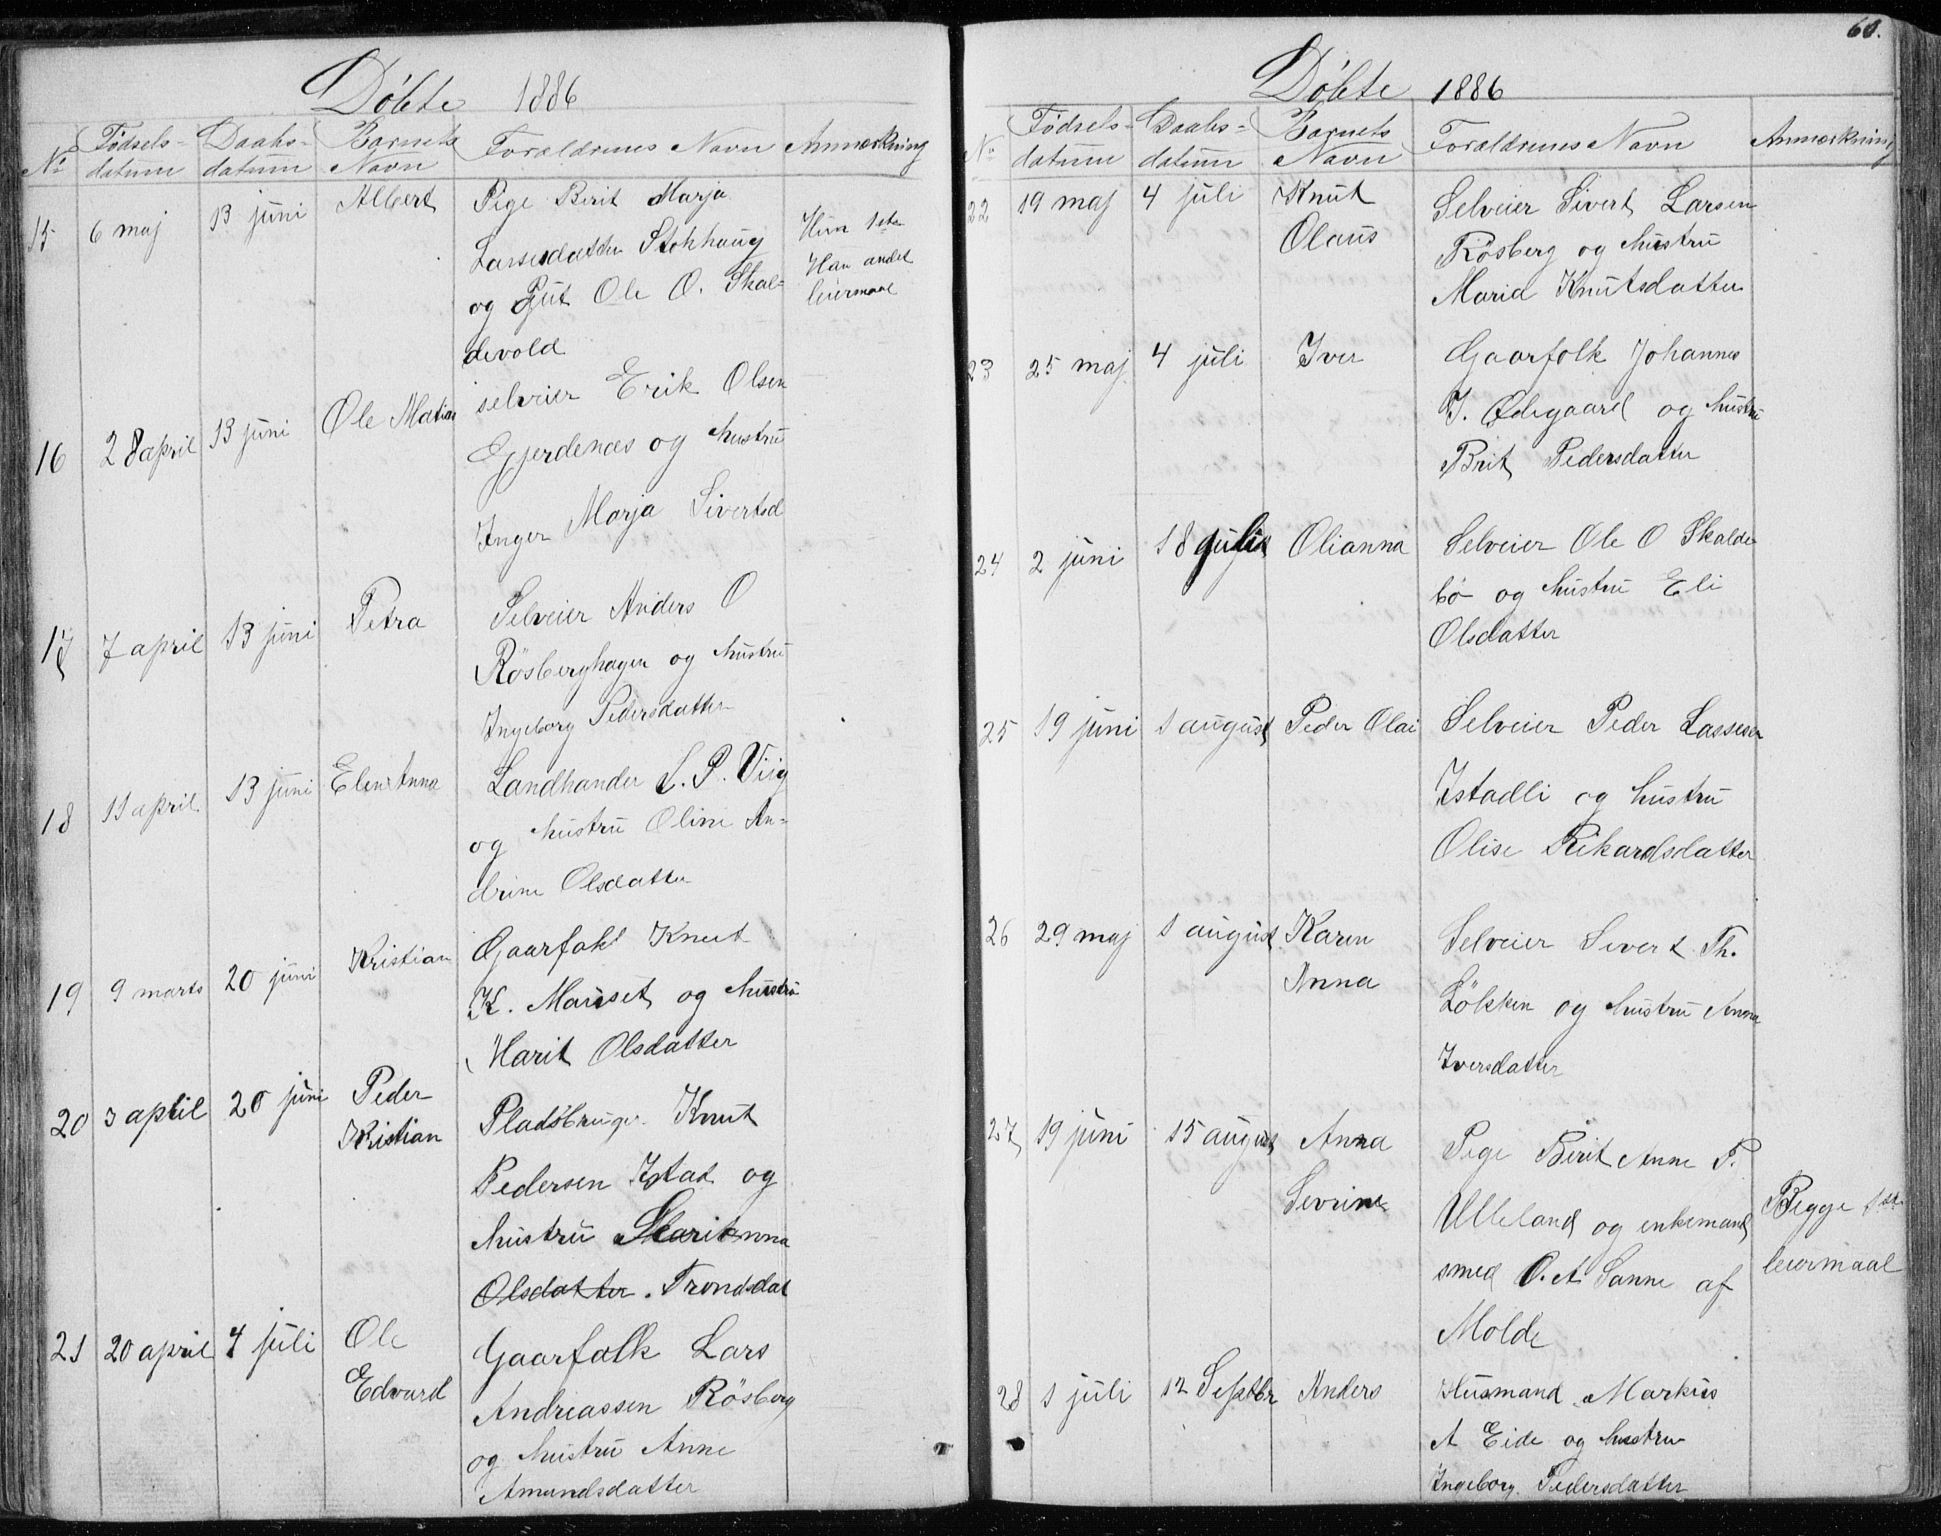 Döbte 1886
No Födsels- datum Daabs- datum Barnets Navn Foraldrenes Navn Anmærkning
15 6 maj 13 juni Albert Pige Berit Marja
Larsesdatter Stokhaug Hun 1ste
og Gut Ole O. Skal- Han andet
devold leiermaal
16 28 april 13 juni Ole Matias selveier Erik Olsen
Gjerdenæs og hustru
Inger Marja Sivertsd
17 7 april 13 juni Petra Selveier Anders O
Rösberghagen og hustru
Ingeborg Pedersdatter
18 11 april 13 juni Eline Anna Landhander L. P. Viig
og hustru Oline An-
drine Olsdatter
19 9 marts 20 juni Kristian Gaarfolk Knut
K. Mauset og hustru
Marit Olsdatter
20 3 april 20 juni Peder Kristian Pladsbruger Knut
Pedersen Istad og
hustru Marit Anna
Olsdatter. Trondsdat
21 20 april 4 juli Ole Edvard Gaarfolk Lars
Andreassen Rösberg
og hustru Anne
Amundsdatter
60.
Döbte 1886
No Födsels- datum Daabs- datum Barnets Navn Foraldrenes Navn Anmærkning
22 19 maj 4 juli Knut Olaus Selveier Sivert Larsen
Rösberg og hustru
Maria Knutsdatter
23 25 maj 4 juli Iver Gaarfolk Johannes
I. Ødegaard og hustru
Brit Pedersdatter
24 2 juni 18 juli Olianna Selveier Ole O Skalde
bö og hustru Eli
Olsdatter
25 19 juni 1 august Peder Olai Selveier Peder Lassesen
Istadli og hustru
Olise Rikardsdatter
26 29 maj 1 august Karen Anna Selveier Sivert Th.
Lökken og hustru Anna
Iversdatter
27 19 juni 15 august Anna Sevrine Pige Berit Anne P.
Ulleland og enkemand Begge 1ste
smed O. A. Sanne af leiermaal
Molde
28 1 juli 12 Septbr Anders Husmand Markus
A Eide og hustru
Ingeborg Pedersdatter